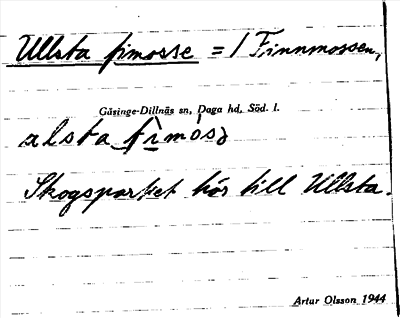 Ullsta fimosse = / Finnmossen,
Gåsinge-Dillnäs sn, Daga hd, Söd. l.
alsta fìmòsə
Skogspartiet hör till Ullsta.
Artur Olsson 1944